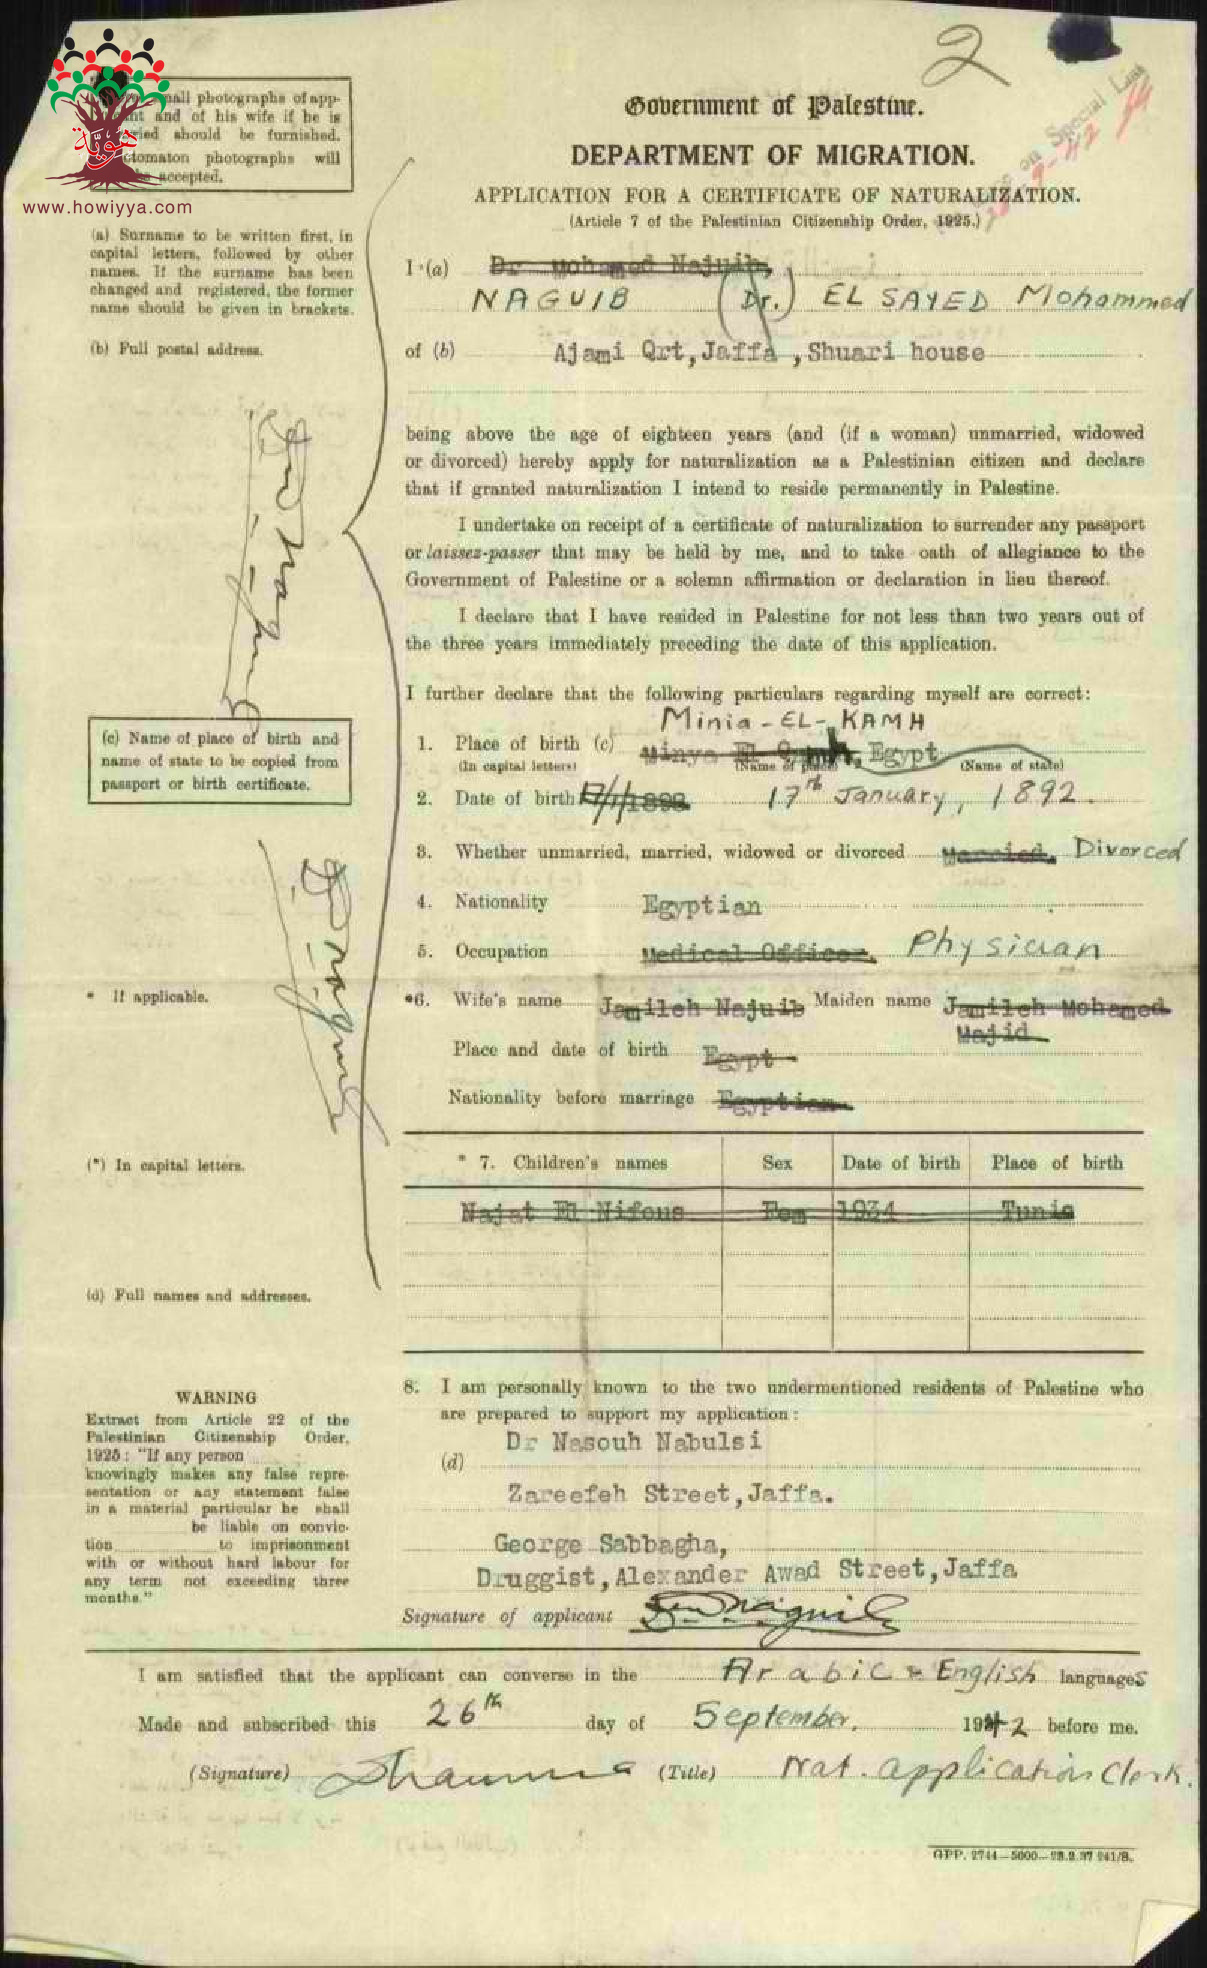 2
Government of Palestine.
DEPARTMENT OF MIGRATION.
APPLICATION FOR A CERTIFICATE OF NATURALIZATION.
(Article 7 of the Palestinian Citizenship Order, 1925.)
on Special List
all photographs of app-
nt and of his wife if he is
ried should be furnished.
ctomaton photographs will
be accepted.
هوية
www.howiyya.com
(a) Surname to be written first, in
capital letters, followed by other
names. If the surname has been
changed and registered, the former
name should be given in brackets.
I (a) Dr Mohamed Najuib,
NAGUIB (Dr.) EL SAYED Mohammed
(b) Full postal address.
of (b) Ajami Qrt, Jaffa, Shuari house
being above the age of eighteen years (and (if a woman) unmarried, widowed
or divorced) hereby apply for naturalization as a Palestinian citizen and declare
that if granted naturalization I intend to reside permanently in Palestine.
I undertake on receipt of a certificate of naturalization to surrender any passport
or laissez-passer that may be held by me, and to take oath of allegiance to the
Government of Palestine or a solemn affirmation or declaration in lieu thereof.
I declare that I have resided in Palestine for not less than two years out of
the three years immediately preceding the date of this application.
I further declare that the following particulars regarding myself are correct:
(c) Name of place of birth and
name of state to be copied from
passport or birth certificate.
Minia-EL-KAMH
1. Place of birth (c) Minya El Qamh, Egypt
(In capital letters) (Name of place) (Name of state)
2. Date of birth 17/1/1892 17th January, 1892.
3. Whether unmarried, married, widowed or divorced Married. Divorced
4. Nationality Egyptian
5. Occupation Medical Officer. Physician
* If applicable.
*6. Wife's name Jamileh Najuib Maiden name Jamileh Mohamed
Majid
Place and date of birth Egypt
Nationality before marriage Egyptian
(*) In capital letters.
* 7. Children's names Sex Date of birth Place of birth
Najat El Nifous Fem 1934 Tunis
(d) Full names and addresses.
8. I am personally known to the two undermentioned residents of Palestine who
are prepared to support my application:
Dr Nasouh Nabulsi
(d)
Zareefeh Street, Jaffa.
George Sabbagha,
Druggist, Alexander Awad Street, Jaffa
Signature of applicant Dr Naguib
WARNING
Extract from Article 22 of the
Palestinian Citizenship Order,
1925: "If any person
knowingly makes any false repre-
sentation or any statement false
in a material particular he shall
be liable on convic-
tion to imprisonment
with or without hard labour for
any term not exceeding three
months."
I am satisfied that the applicant can converse in the Arabic & English languages
Made and subscribed this 26th day of September. 1942 before me.
(Signature) (Title) Nat. application Clerk.
GPP. 2744—5000—23.2.37 241/S.